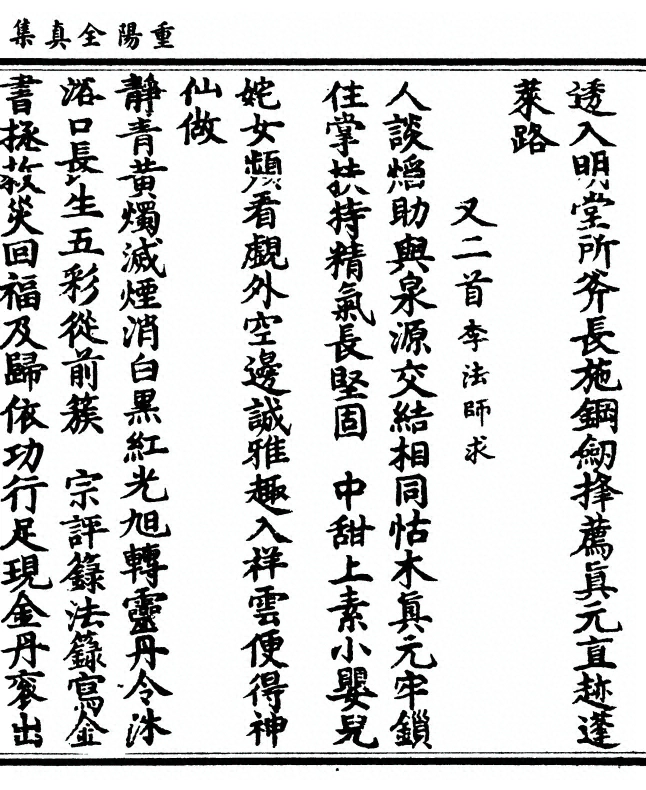 重陽全真集
透入明堂所斧長施鋼劒擇薦真元直趂蓬
萊路
又二首李法師求
人談焰助與泉源交結相同怙木真元牢鎖
住掌扶持精氣長堅固　中甜上素小嬰兒
姹女頻看覷外空邊誠雅趣入祥雲便得神
仙做
靜青黃燭滅煙消白黑紅光旭轉靈丹令沐
浴口長生五彩從前簇　宗評籙法籙寫金
書拯救災回福及歸依功行足現金丹衮出